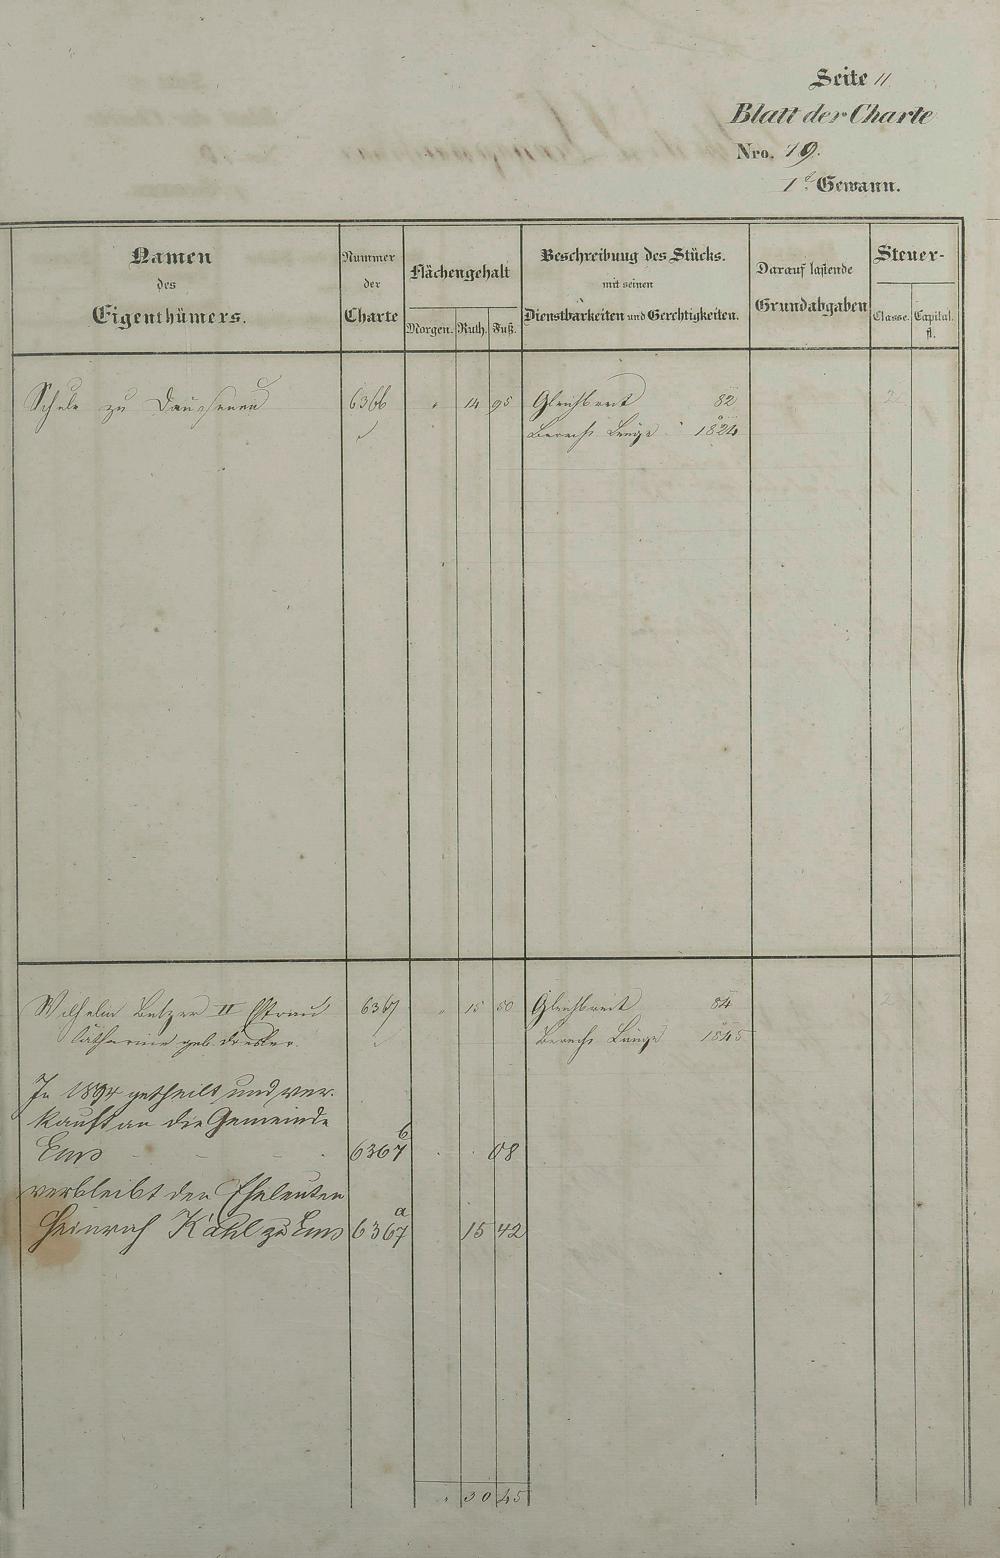 Seite 11
Blatt der Charte
Nro. 19.
1te Gewann.
Namen des Eigenthümers.
Nummer der Charte
Flächengehalt
Morgen. Ruth. Fuß.
Beschreibung des Stücks. mit seinen Dienstbarkeiten und Gerechtigkeiten.
Darauf lastende Grundabgaben
Steuer-
Classe. Capital. fl.
Schule zu Dausenau 6366 " 14 95 Gleichbreit 82 2
Berech. Länge 1824
Wilhelm Balzer II 6367 " 15 50 Gleichbreit 84 2
Catharine geb. Berech. Länge 1845
In 1894 getheilt und ver-
kauft an die Gemeinde
Ems 6367 b 08
verbleibt den Eheleuten
Heinrich Kahl zu Ems 6367 a 15 42
" 30 45